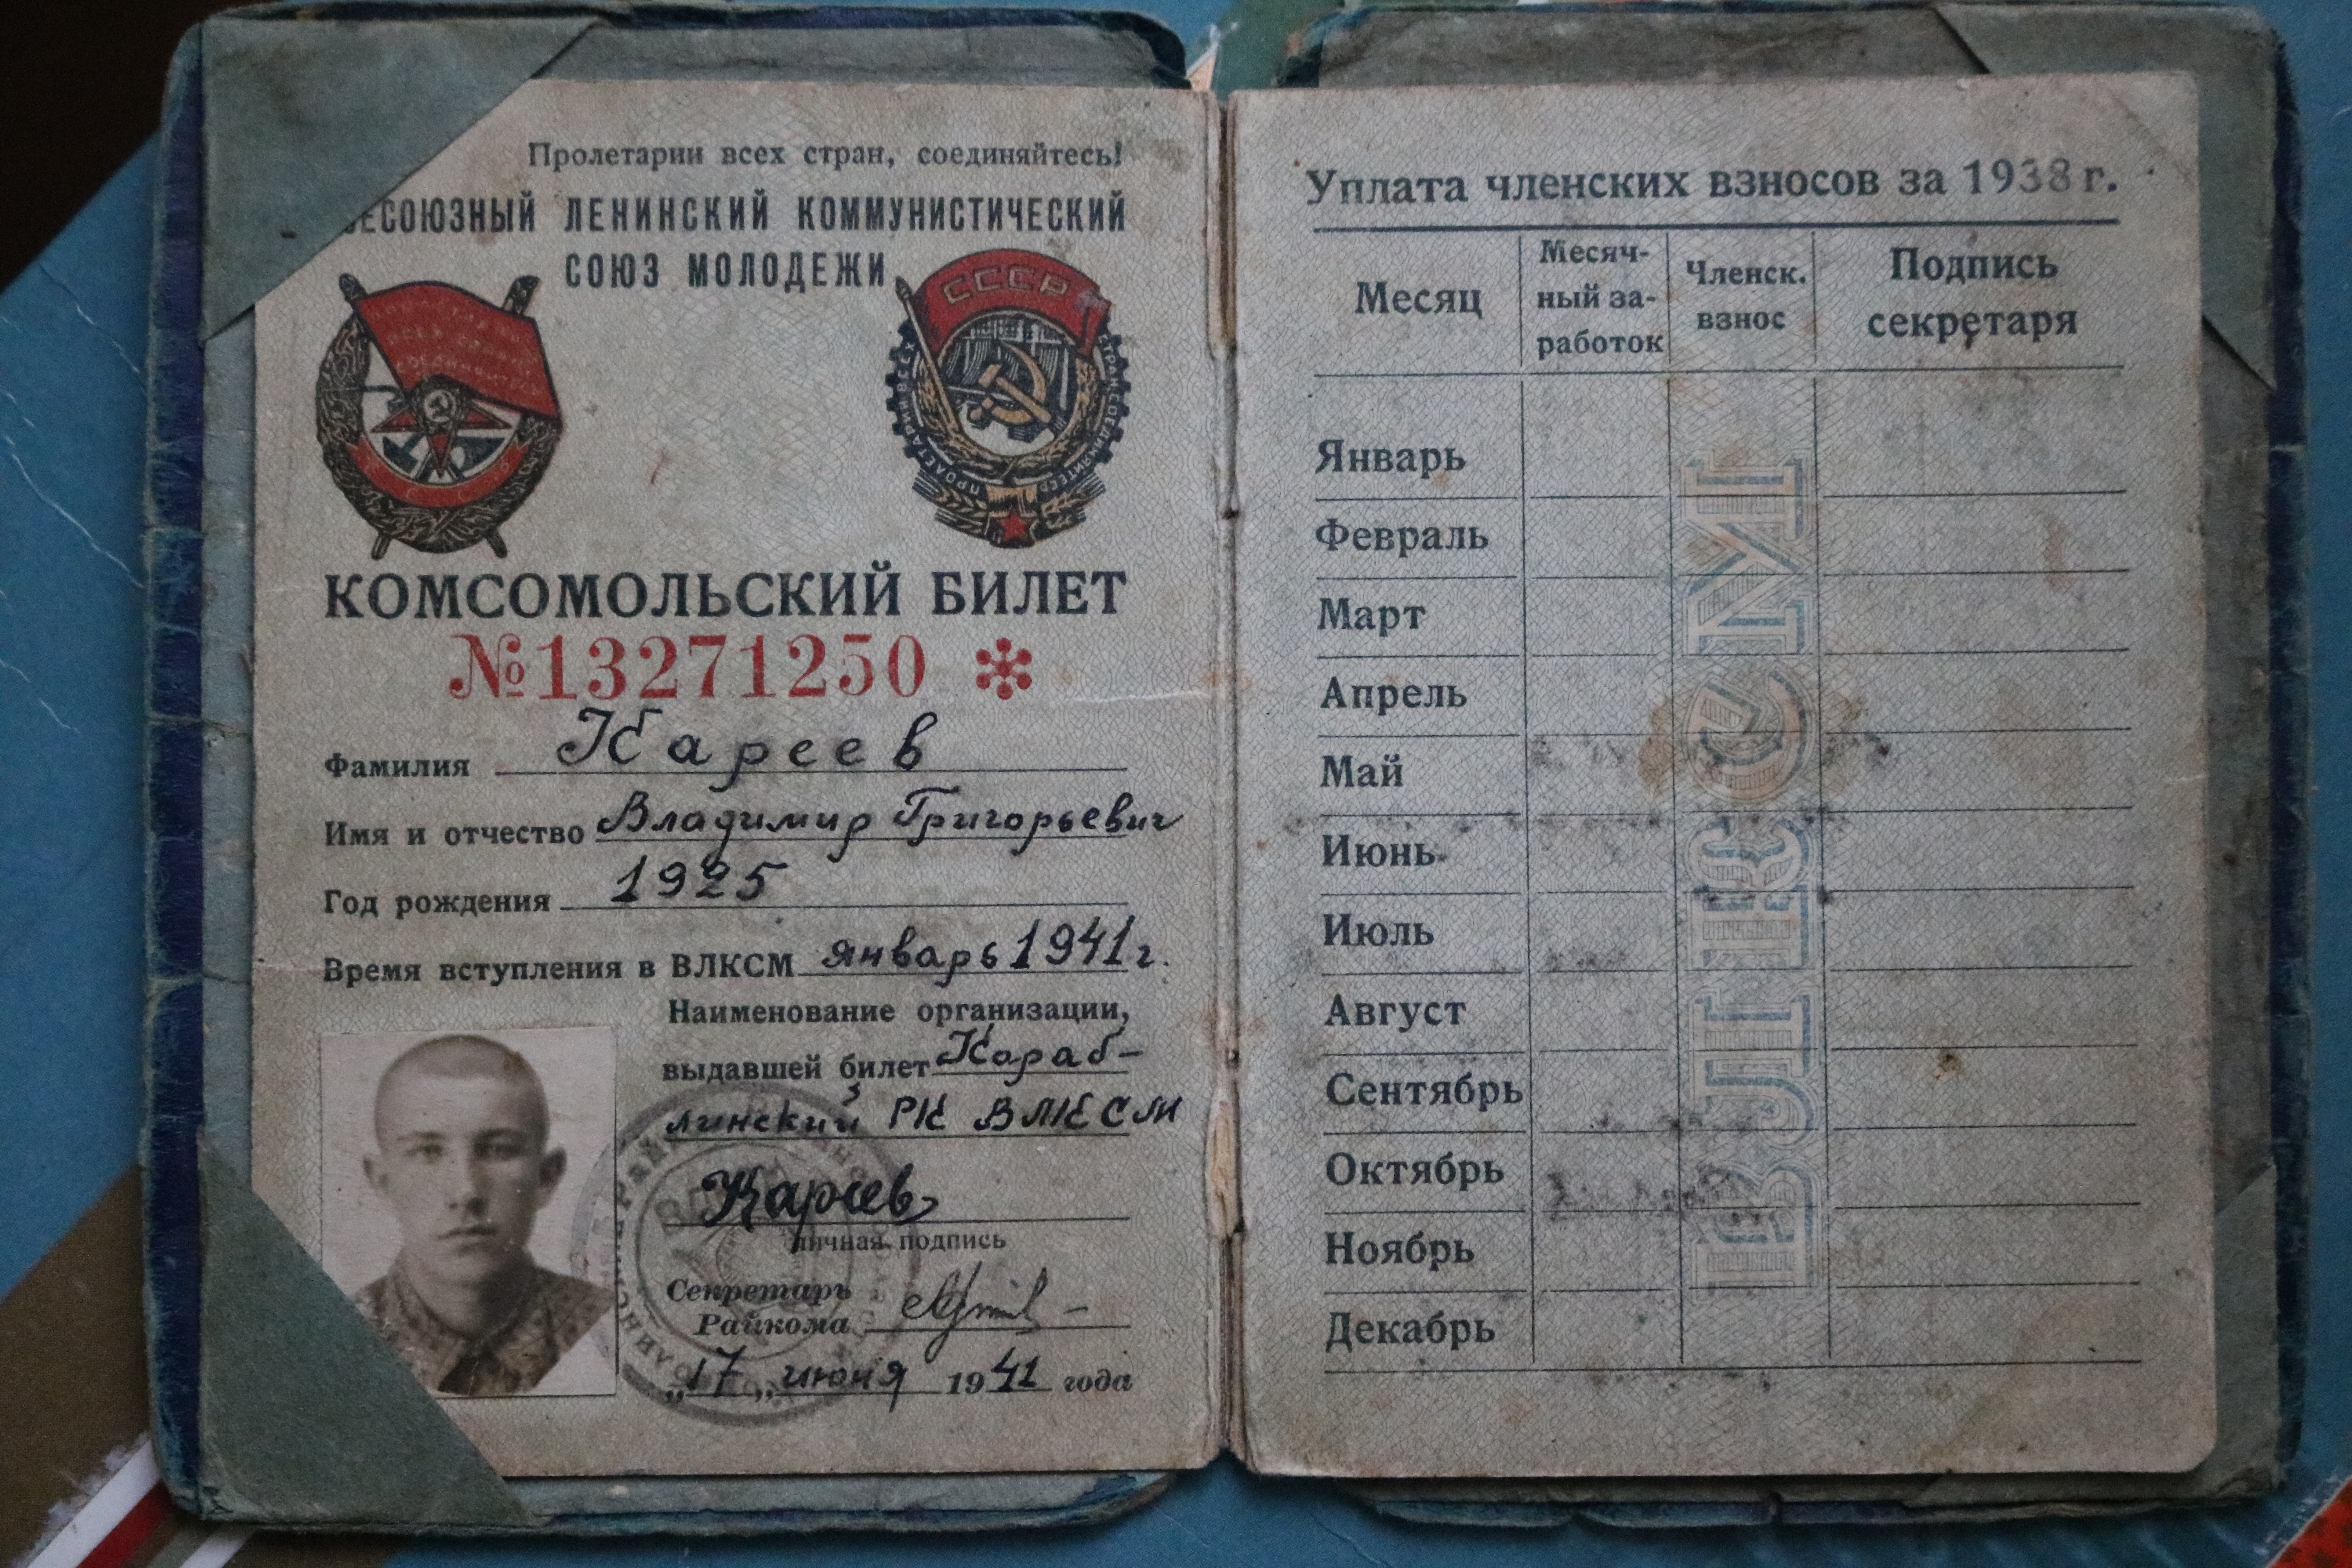 Пролетарии всех стран, соединяйтесь!
ЕСОЮЗНЫЙ ЛЕНИНСКИЙ КОММУНИСТИЧЕСКИЙ
СОЮЗ МОЛОДЕЖИ
СССР
КОМСОМОЛЬСКИЙ БИЛЕТ
№13271250 *
Фамилия Кареев
Имя и отчество Владимир Григорьевич
Год рождения 1925
Время вступления в ВЛКСМ январь 1941 г.
Наименование организации,
выдавшей билет Караб-
линский РК ВЛКСМ
Кареев
личная подпись
Секретарь
Райкома
„17„ июня 1941 года
Уплата членских взносов за 1938 г.
Месяц
Месяч-
ный за-
работок
Членск.
взнос
Подпись
секретаря
Январь
Февраль
Март
Апрель
Май
Июнь
Июль
Август
Сентябрь
Октябрь
Ноябрь
Декабрь
ВЛКСМ